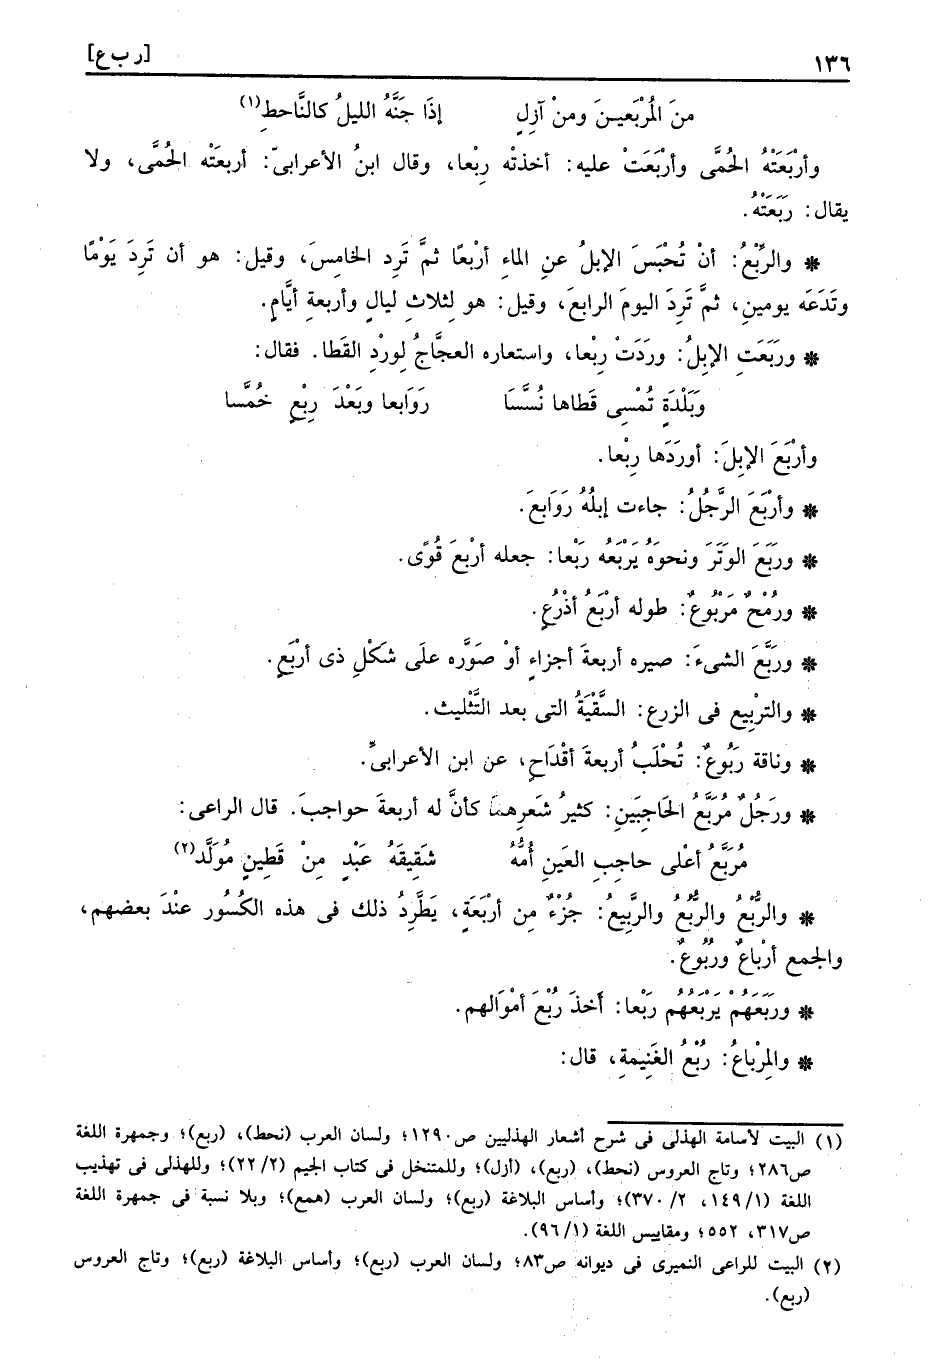 ١٣٦ [ر ب ع]
منَ المُرْبَعيـنَ ومنْ آزِلٍ إذَا جَنَّهُ الليلُ كالنَّاحطِ(١)
وأرْبَعَتْهُ الحُمَّى وأرْبَعَتْ عليه: أخذتْه رِبْعا، وقال ابنُ الأعرابىّ: أربعَتْه الحُمَّى، ولا
يقال: رَبَعَتْهُ.
* والرِّبْعُ: أنْ تُحْبَسَ الإبلُ عنِ الماءِ أرْبعًا ثمَّ تَرِد الخامِسَ، وقيل: هو أن تَرِدَ يَوْمًا
وتَدَعَه يومينِ، ثمَّ تَرِدَ اليومَ الرابعَ، وقيل: هو لِثلاثِ ليالٍ وأربعةِ أيَّامٍ.
* ورَبَعَتِ الإبلُ: وردَتْ رِبْعا، واستعاره العجَّاجُ لوِرْدِ القَطا. فقال:
وَبَلْدَةٍ تُمْسِى قَطاها نُسَّسَا رَوَابعا وبَعْدَ رِبْعٍ خُمَّسا
وأرْبَعَ الإبلَ: أورَدَها رِبْعا.
* وأرْبَعَ الرَّجُلُ: جاءت إبلُهُ رَوَابعَ.
* ورَبَعَ الوَتَرَ ونحوَهُ يَرْبَعُه رَبْعا: جعله أرْبعَ قُوًى.
* ورُمْحٌ مَرْبُوعٌ: طوله أرْبَعُ أذْرُعٍ.
* ورَبَّعَ الشىءَ: صيره أربعةَ أجزاءٍ أوْ صَوَّره علَى شَكْلِ ذى أرْبَعٍ.
* والترْبِيع فى الزرع: السَّقْيَةُ التى بعد التَّثْليث.
* وناقة رَبُوعٌ: تُحْلَبُ أربعةَ أقْدَاحٍ، عن ابن الأعرابىِّ.
* ورَجُلٌ مُرَبَّعُ الحَاجِبَينِ: كثيرُ شَعرِهما كأنَّ له أربعةَ حواجبَ. قال الراعى:
مُرَبَّعُ أعْلى حاجبِ العَينِ أُمُّهُ شَقِيقَهُ عَبْدٍ مِنْ قَطِينٍ مُوَلَّد(٢)
* والرُّبْعُ والرُّبُعُ والرَّبِيعُ: جُزْءٌ من أرْبَعَةٍ، يَطَّرِدُ ذلك فى هذه الكُسُور عنْدَ بعضهم،
والجمع أرْباعٌ ورُبُوعٌ.
* ورَبَعَهُمْ يَرْبَعُهُم رَبْعا: أَخذَ رُبْعَ أمْوَالهم.
* والمِرْباعُ: رُبْعُ الغَنِيمةِ، قال:
(١) البيت لأسامة الهذلى فى شرح أشعار الهذليين ص١٢٩٠؛ ولسان العرب (نحط)، (ربع)؛ وجمهرة اللغة
ص٢٨٦؛ وتاج العروس (نحط)، (ربع)، (أزل)؛ وللمتنخل فى كتاب الجيم (٢/ ٢٢)؛ وللهذلى فى تهذيب
اللغة (١/ ١٤٩، ٢/ ٣٧٠)؛ وأساس البلاغة (ربع)؛ ولسان العرب (همع)؛ وبلا نسبة فى جمهرة اللغة
ص٣١٧، ٥٥٢؛ ومقاييس اللغة (١/ ٩٦).
(٢) البيت للراعى النميرى فى ديوانه ص٨٣؛ ولسان العرب (ربع)؛ وأساس البلاغة (ربع)؛ وتاج العروس
(ربع).